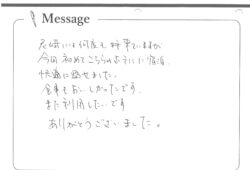 Message
尼崎には何度も 料 来ていますが
今回 初めてこちらのホテルに宿泊
快適に過せました。
食事もおいしかったです
また利用したいです
ありがとうございました。